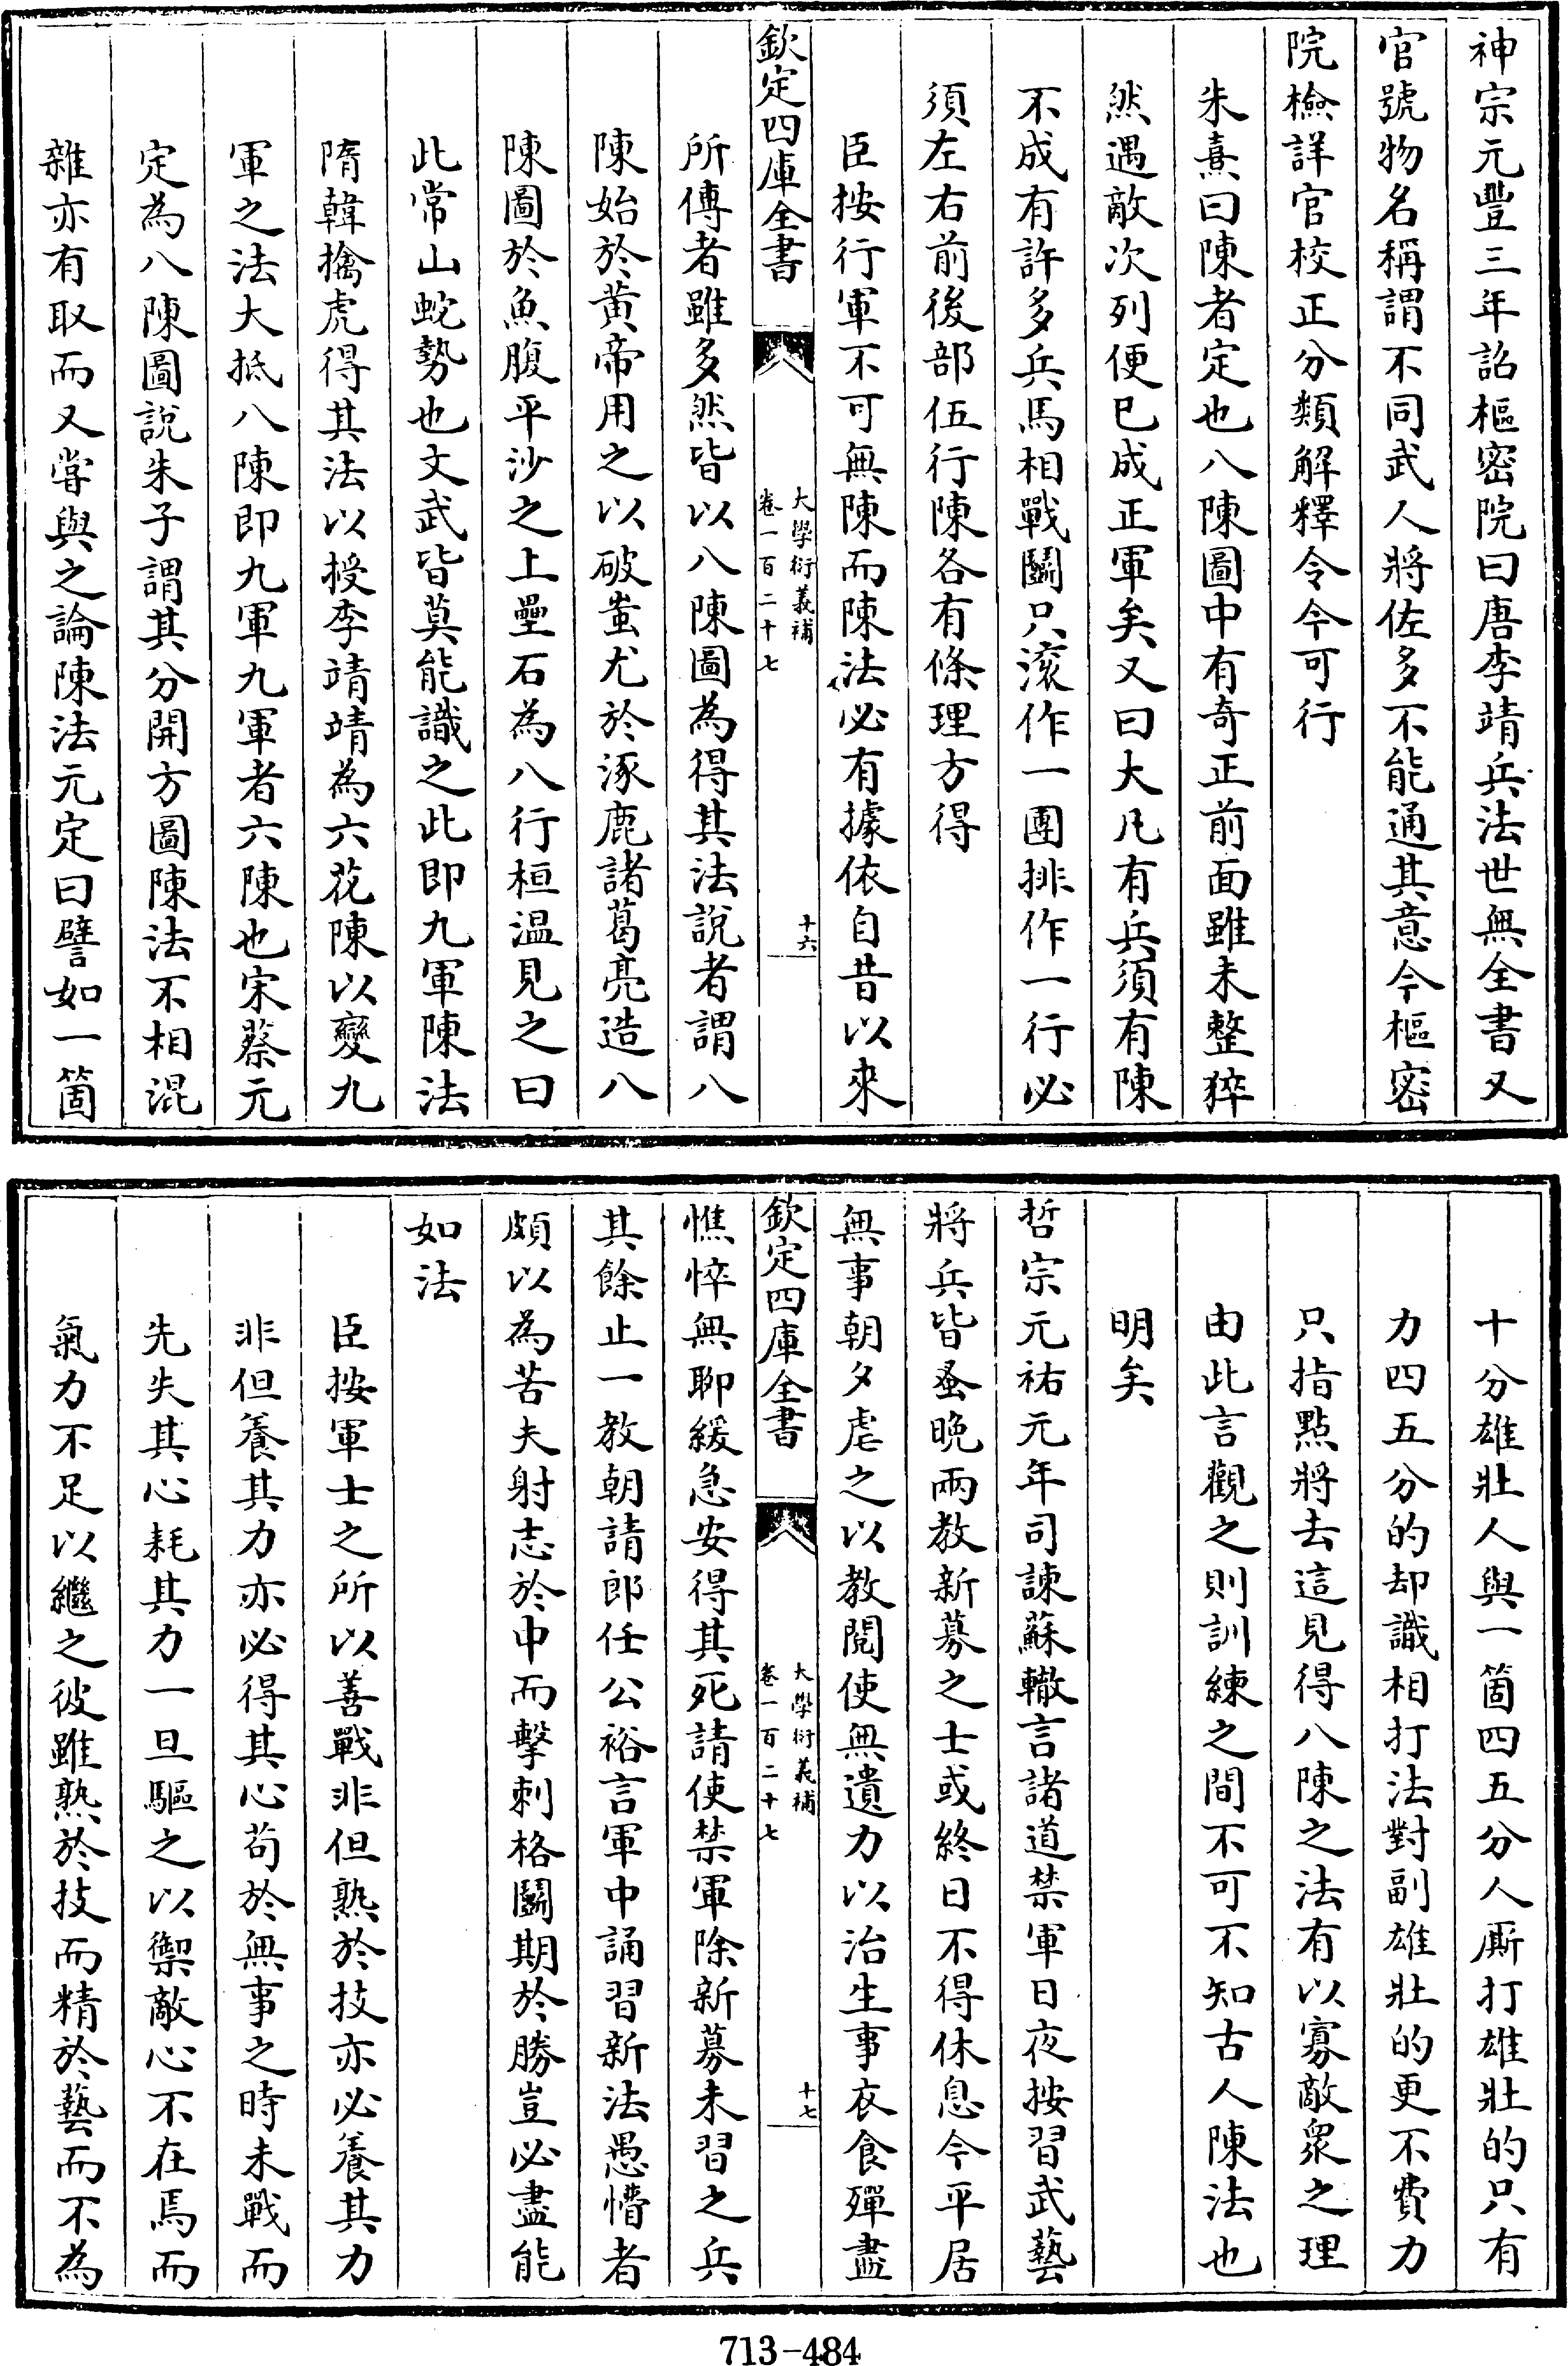 神宗元豐三年詔樞密院曰唐李靖兵法世無全書又
官號物名稱謂不同武人將佐多不能通其意今樞密
院檢詳官校正分類解釋令今可行
朱熹曰陳者定也八陳圖中有奇正前面雖未整猝
然遇敵次列便已成正軍矣又曰大凡有兵須有陳
不成有許多兵馬相戰鬬只滚作一團排作一行必
須左右前後部伍行陳各有條理方得
臣按行軍不可無陳而陳法必有據依自昔以來
欽定四庫全書
大學衍義補
卷一百二十七
十六
所傳者雖多然皆以八陳圖為得其法說者謂八
陳始於黄帝用之以破蚩尤於涿鹿諸葛亮造八
陳圖於魚腹平沙之上壘石為八行桓温見之曰
此常山蛇勢也文武皆莫能識之此即九軍陳法
隋韓擒虎得其法以授李靖靖為六花陳以變九
軍之法大抵八陳即九軍九軍者六陳也宋蔡元
定為八陳圖說朱子謂其分開方圖陳法不相混
雜亦有取而又嘗與之論陳法元定曰譬如一箇
十分雄壯人與一箇四五分人厮打雄壯的只有
力四五分的却識相打法對副雄壯的更不費力
只指點將去這見得八陳之法有以寡敵衆之理
由此言觀之則訓練之間不可不知古人陳法也
明矣
哲宗元祐元年司諫蘇轍言諸道禁軍日夜按習武藝
將兵皆蚤晚兩教新募之士或終日不得休息今平居
無事朝夕虐之以教閱使無遺力以治生事衣食殫盡
欽定四庫全書
大學衍義補
卷一百二十七
十七
憔悴無聊緩急安得其死請使禁軍除新募未習之兵
其餘止一教朝請郎任公裕言軍中誦習新法愚懵者
頗以為苦夫射志於中而擊刺格鬬期於勝豈必盡能
如法
臣按軍士之所以善戰非但熟於技亦必養其力
非但養其力亦必得其心苟於無事之時未戰而
先失其心耗其力一旦驅之以禦敵心不在焉而
氣力不足以繼之彼雖熟於技而精於藝而不為
713-484